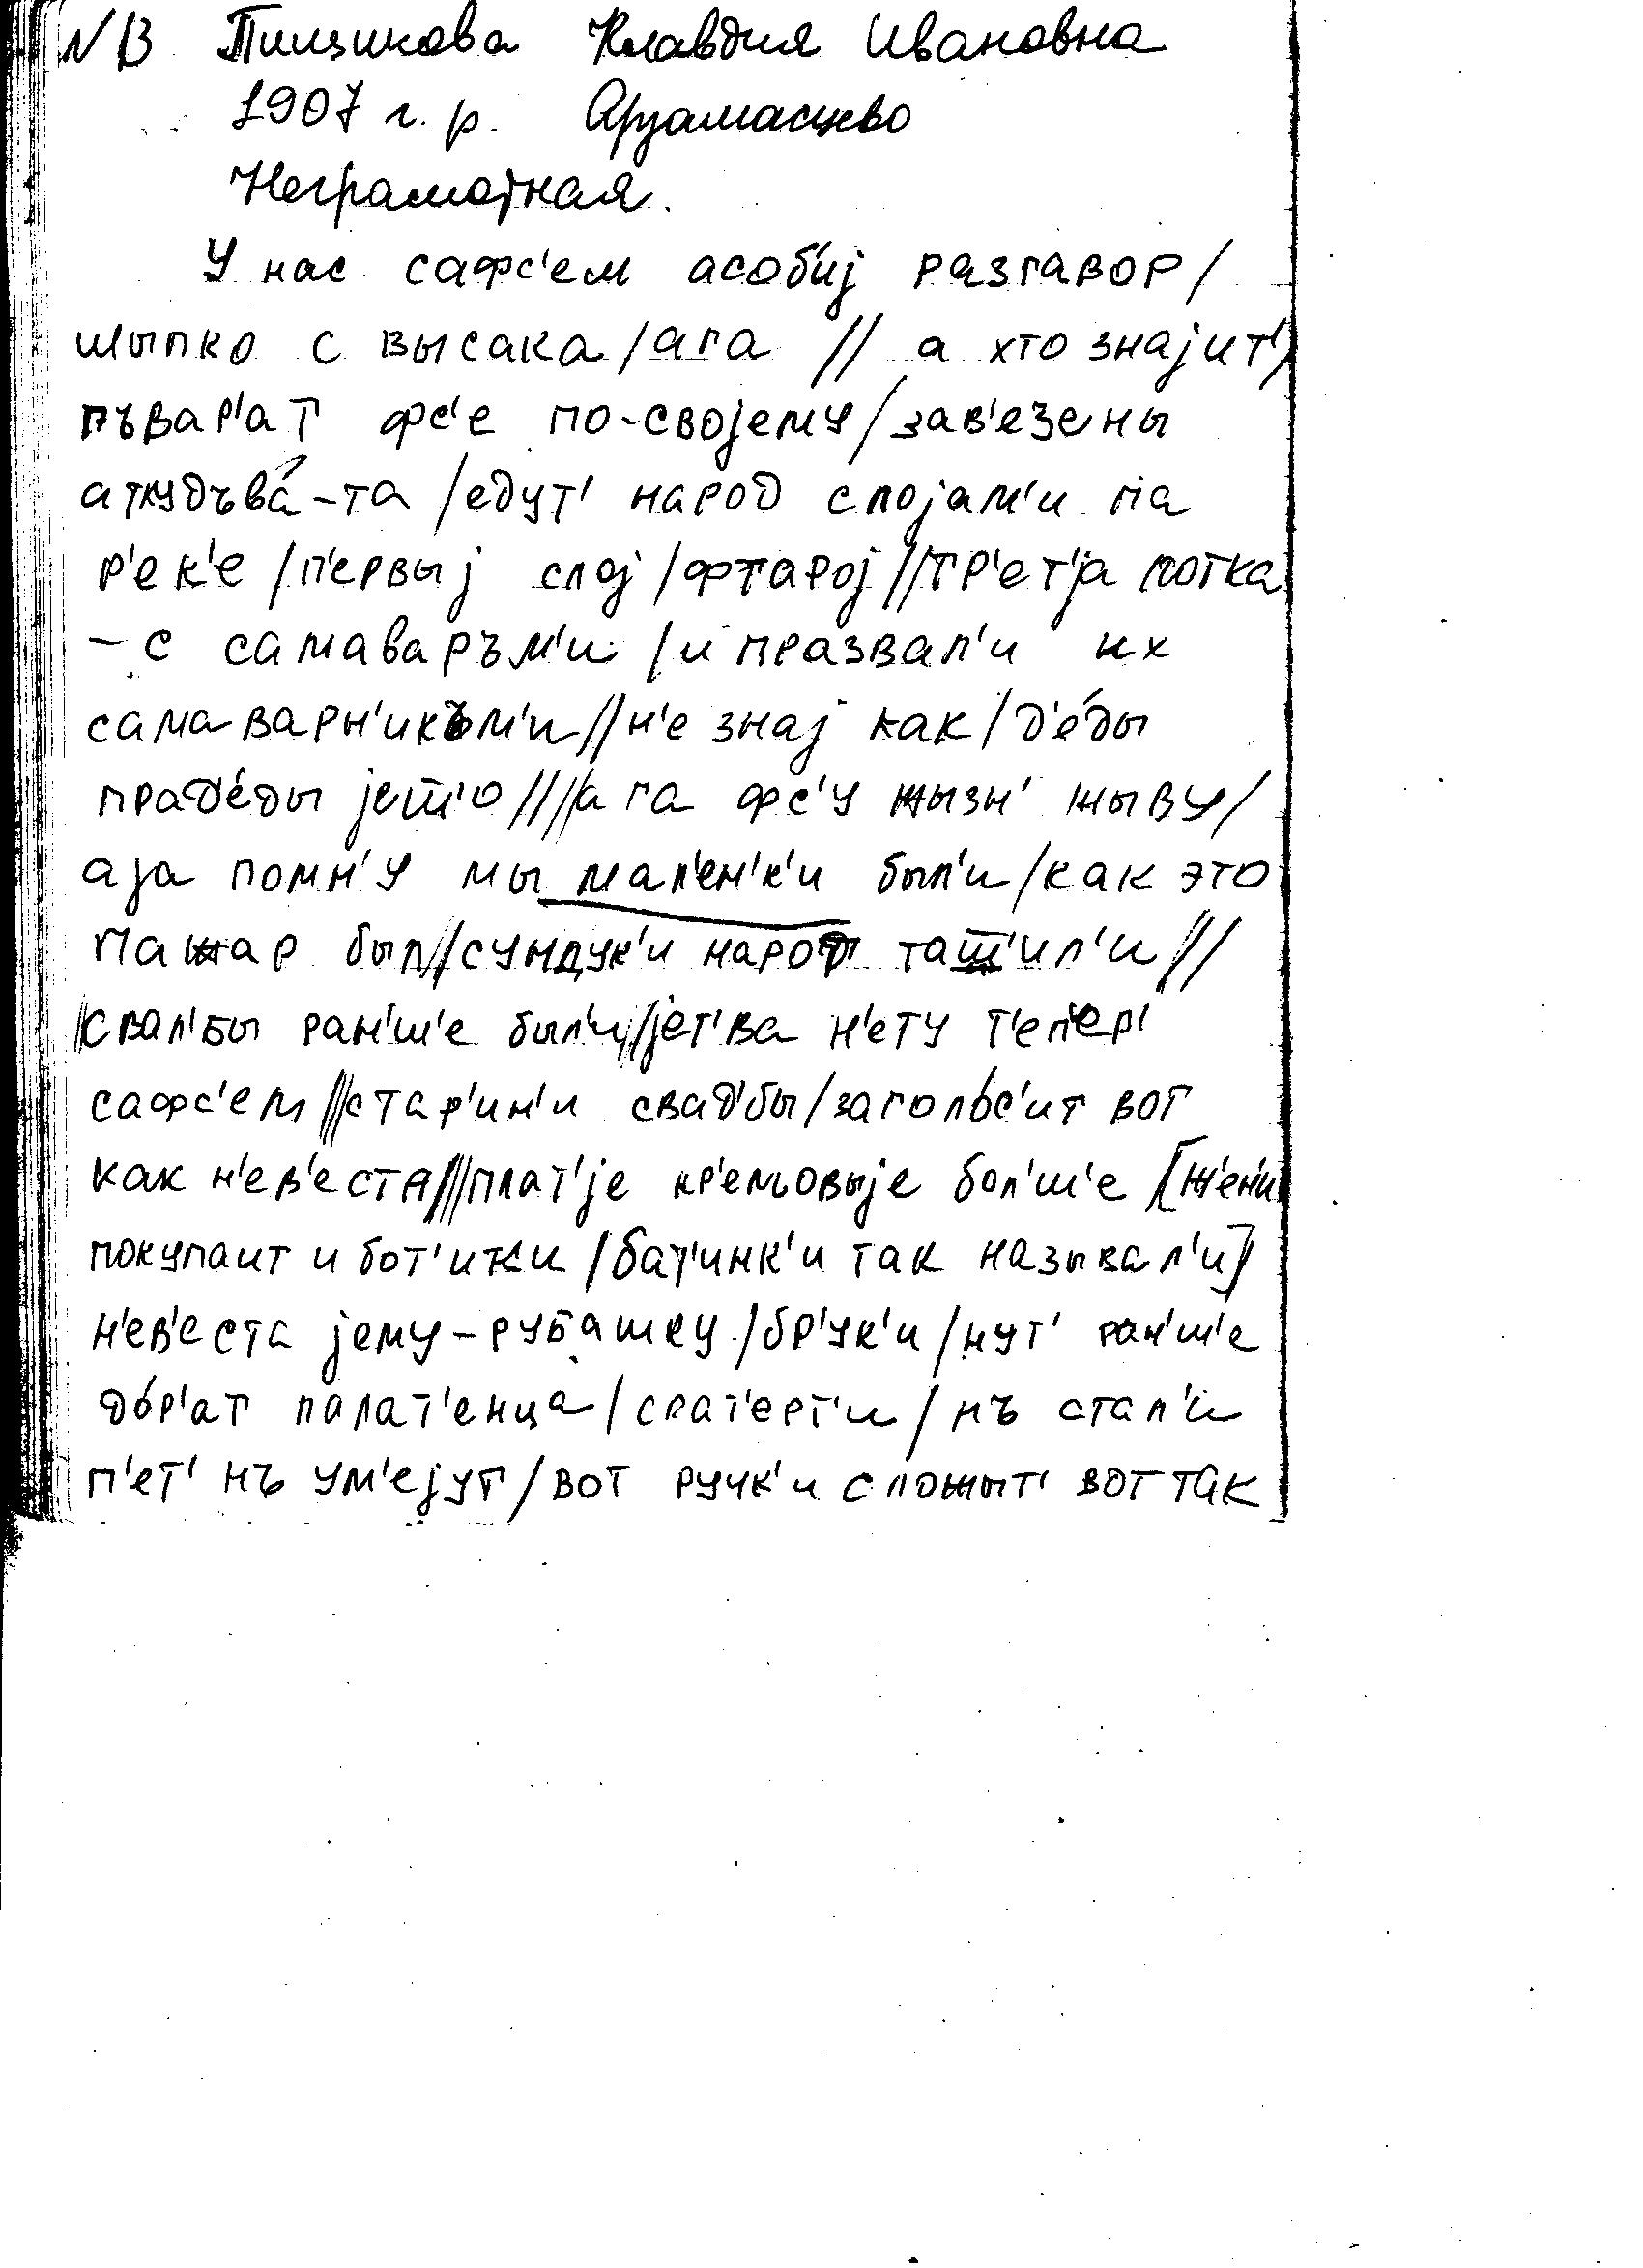 NB Пищикова Клавдия Ивановна
1907 г. р. Арзамасцево
Неграмотная.
У нас сафс'ем асоб'иj разгавор/
шыпко с высака/ага // а хто знаjит'/
пъвар'ат фс'е по-своjему/зав'езены
аткудъва́-та /едут' народ слоjам'и па
р'ек'е /п'ервыj слоj/фтароj//тр'ет'jа лотка
– с самаваръм'и /и празвал'и их
самаварн'икъм'и//н'е знаj как/д'е́ды
прад'е́ды jещ'о///ага фс'у жызн' жыву/
а jа помн'у мы мал'ен'к'и был'и/как это
пажар был//сундук'и народ тащ'ил'и//
свал'бы ран'ш'е был'и//jет'ва н'ету т'еп'ер'
сафс'ем///стар'ин'и свад'бы/заголо́с'ит вот
как н'ев'еста///плат'jе кр'емовыjе бол'ш'е [ж'ен'и
покупаит и бот'ики /бат'инк'и так называл'и]
н'ев'еста jему–рубашку/бр'ук'и/нут' ран'ш'е
до́р'ат палат'енца/скат'ерт'и/нъ стал'и
п'ет' нъ ум'еjут/вот ручк'и сложыт' вот так